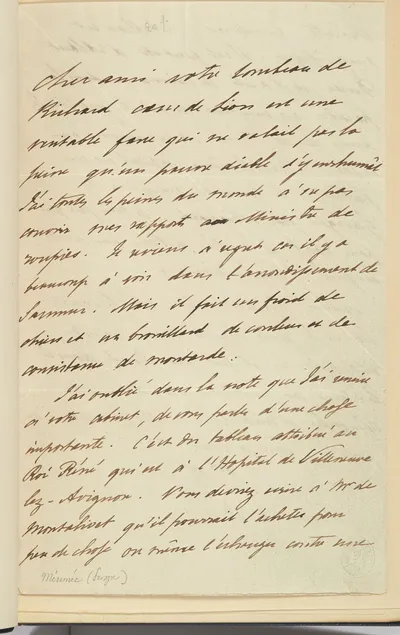 Cher ami votre tombeau de
Richard cœur de Lion est une
véritable farce qui ne valait pas la
peine qu'un pauvre diable s'y enrhumât
J'ai toutes les peines du monde à ne pas
couvrir mes rapports au Ministre de
roupies. Je reviens à Angers car il y a
beaucoup à voir dans l'arrondissement de
Saumur. Mais il fait un froid de
chien et un brouillard de couleur et de
consistance de moutarde.
J'ai oublié dans la note que j'ai remise
à votre cabinet, de vous parler d'une chose
importante. C'est du tableau attribué au
Roi Réné qui est à l'Hopital de Villeneuve
lez-Avignon. Vous devriez écrire à Mr de
Montalivet qu'il pourrait l'acheter pour
peu de chose ou même l'échanger contre une
Mérimée (Prosper)